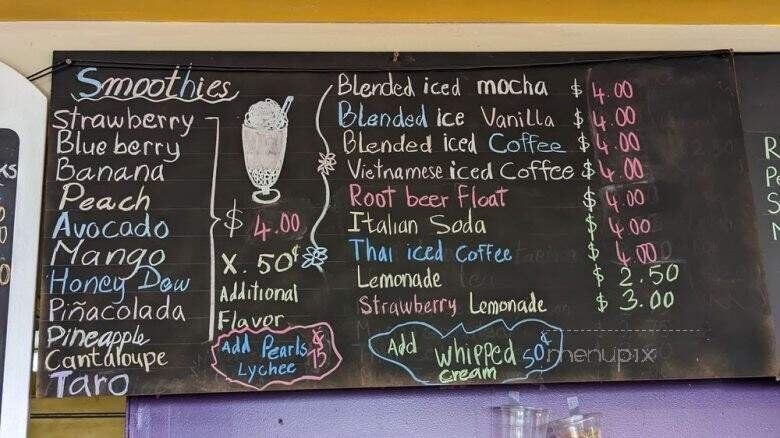 Smoothies
Strawberry
Blueberry
Banana
Peach
Avocado
Mango
Honey Dew
Piñacolada
Pineapple
Cantaloupe
Taro
$4.00
X .50¢
Additional
Flavor
Add Pearls ¢75
Lychee
Blended iced mocha $4.00
Blended ice Vanilla $4.00
Blended iced Coffee $4.00
Vietnamese iced Coffee $4.00
Root beer Float $4.00
Italian Soda $4.00
Thai iced Coffee $4.00
Lemonade $2.50
Strawberry Lemonade $3.00
Add whipped 50¢
cream
menupix